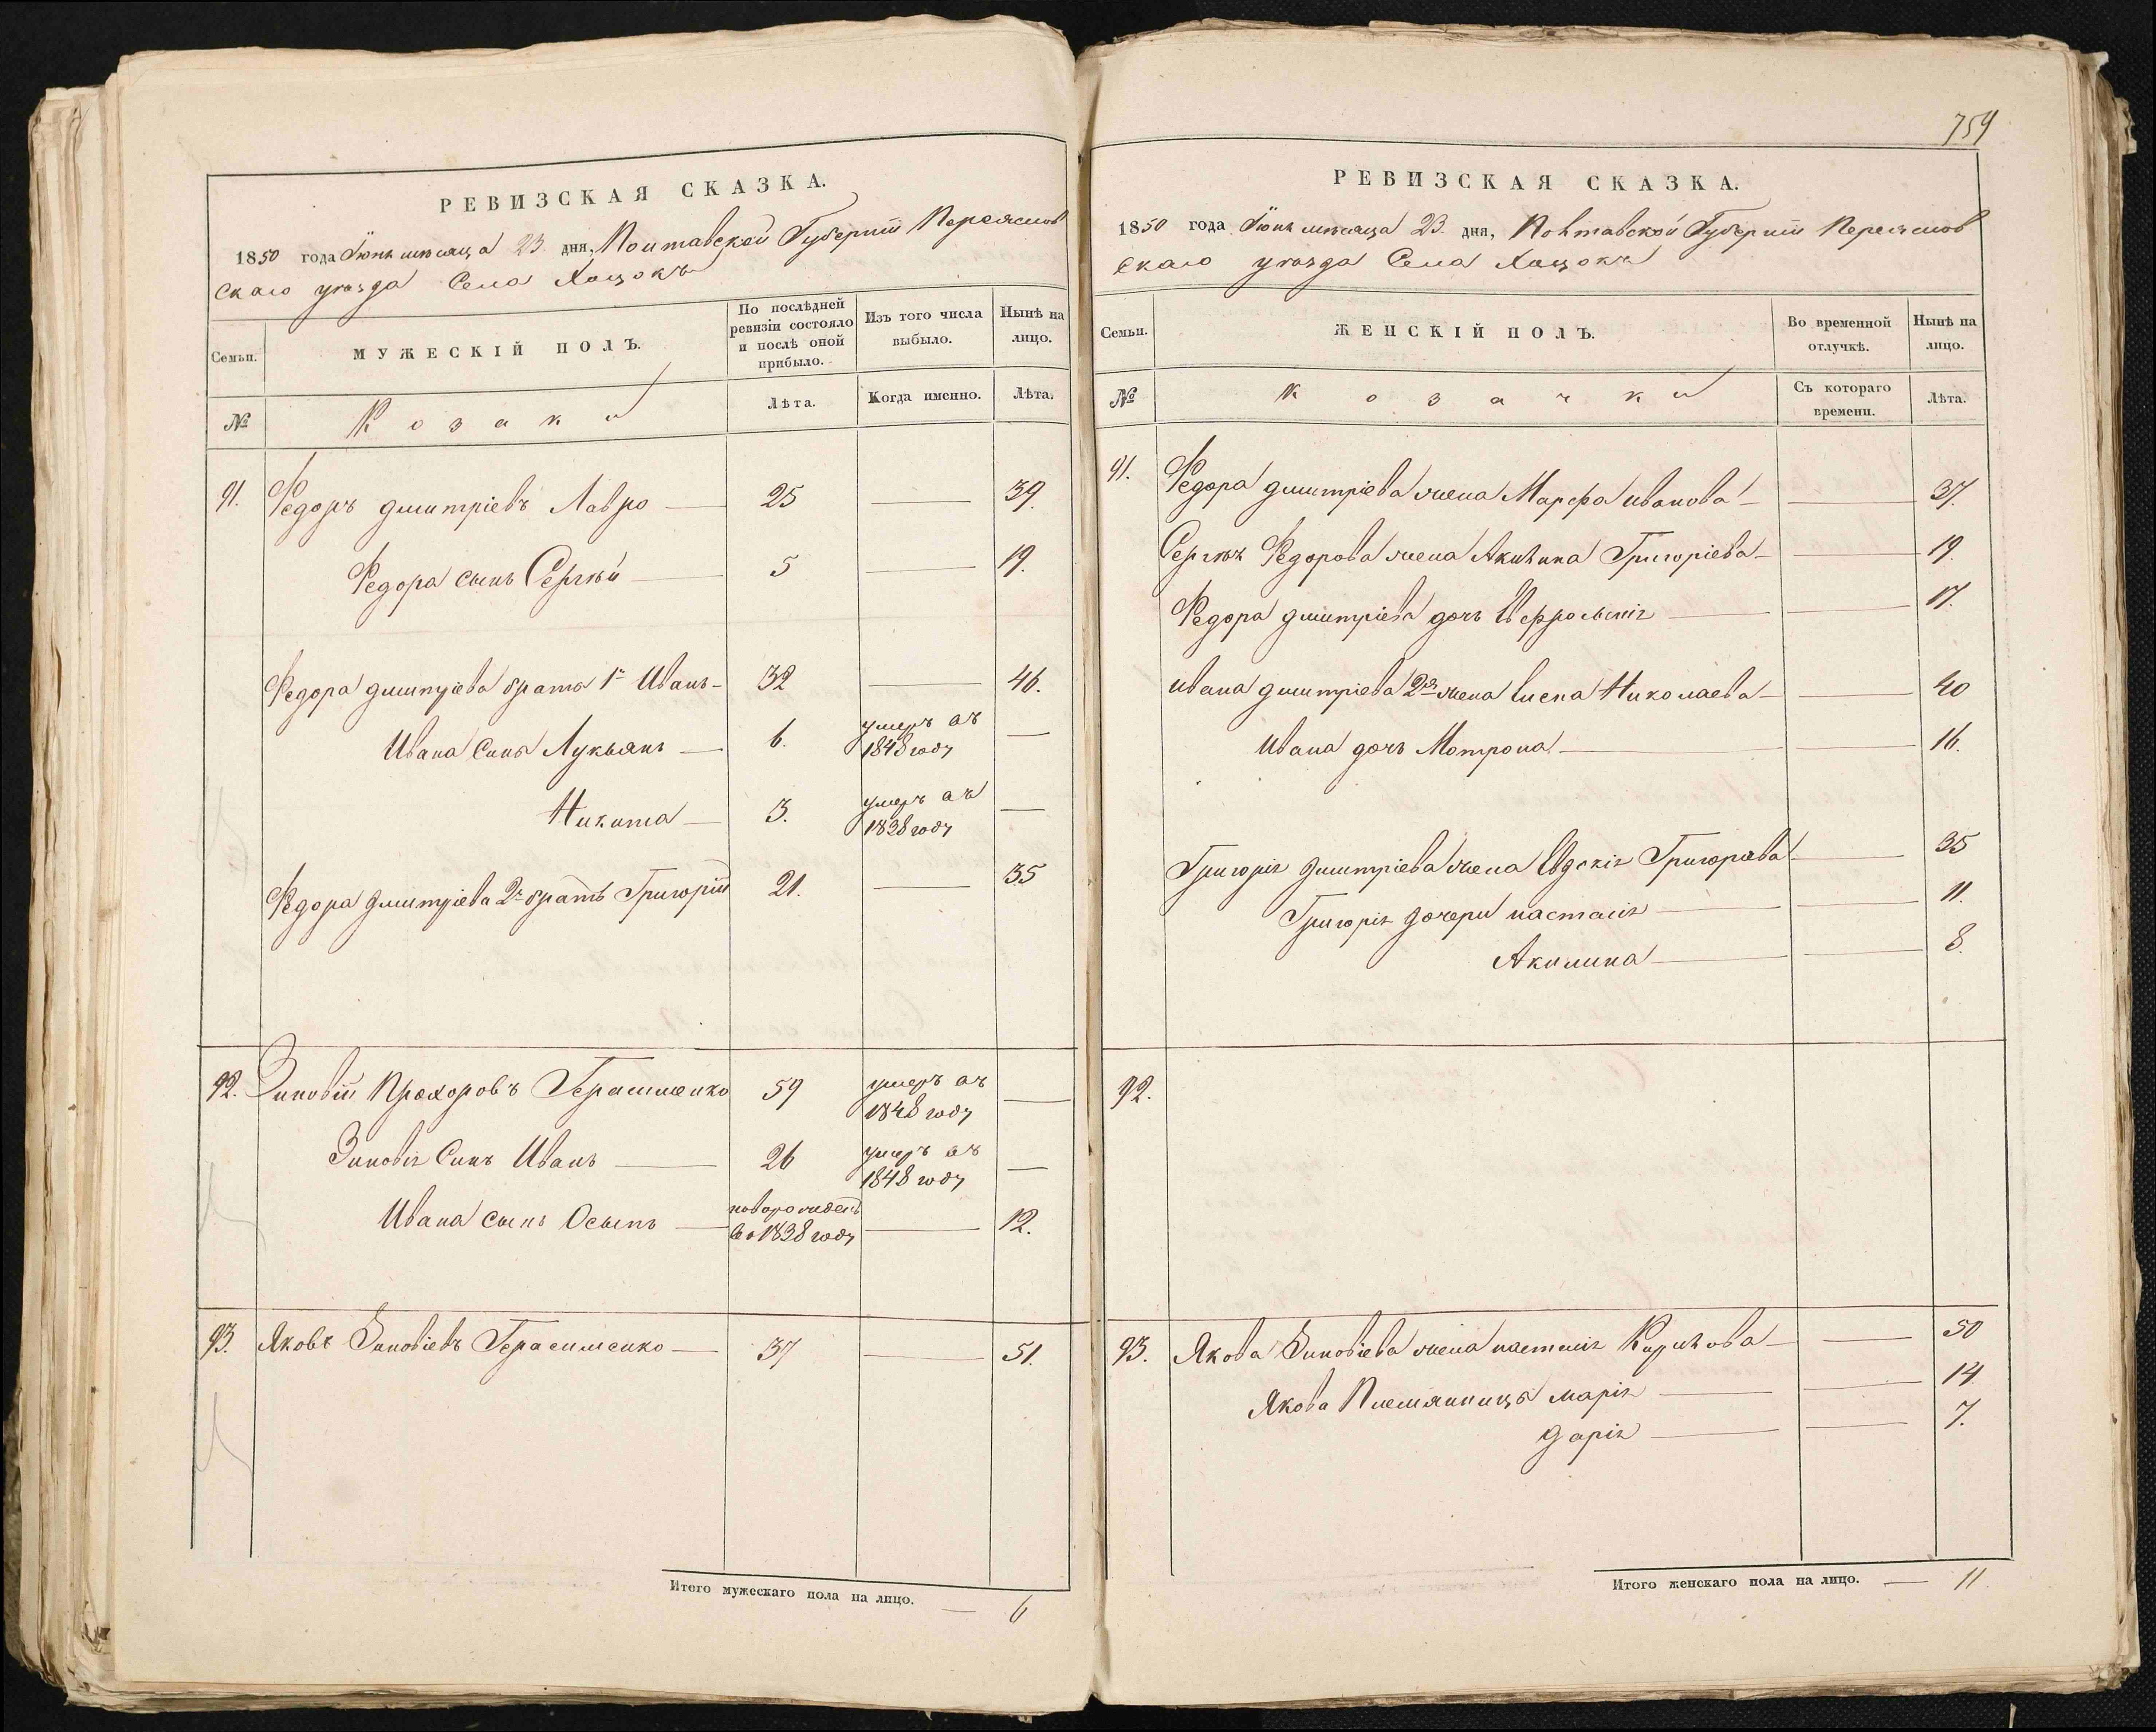 РЕВИЗСКАЯ СКАЗКА.
1850 года Іюня мѣсяца 23 дня, Полтавской Губерніи Переяслов
скаго уѣзда Села Хоцокъ
Семьи.
МУЖЕСКІЙ ПОЛЪ.
По послѣдней ревизіи состояло и послѣ оной прибыло.
Изъ того числа выбыло.
Нынѣ на лицо.
№
Козаки
Лѣта.
Когда именно.
Лѣта.
91. Федоръ дмитріевъ Лавро — 25 — 39.
Федора сынъ Сергѣй — 5 — 19.
Федора дмитріева братъ 1й Иванъ — 32 — 46.
Ивана Сынъ Лукьянъ — 6. умеръ въ 1848 году —
Никита — 3. умеръ въ 1838 году —
Федора дмитріева 2й братъ Григорій 21. — 35
92. Зиновій Прохоровъ Герасименко 59 умеръ въ 1848 году —
Зиновія Сынъ Иванъ — 26 умеръ въ 1848 году —
Ивана сынъ Осыпъ — новорожденъ въ 1838 году — 12.
93. Яковъ Зиновіевъ Герасименко — 37 — 51.
Итого мужескаго пола на лицо. — 6
759
РЕВИЗСКАЯ СКАЗКА.
1850 года Іюня мѣсяца 23 дня, Полтавской Губерніи Переяслов
скаго уѣзда Села Хоцокъ
Семьи.
ЖЕНСКІЙ ПОЛЪ.
Во временной отлучкѣ.
Нынѣ на лицо.
№
Козачки
Съ котораго времени.
Лѣта.
91. Федора дмитріева жена Марфа иванова — — 37.
Сергѣя Федорова жена Акилина Григоріева — — 19.
Федора дмитріева дочь Евфросинія — — 17.
ивана дмитріева 2я жена Елена Николаева — — 40
Ивана дочь Мотрона — — 16.
Григорія дмитріева жена Евдокія Григоріева — — 35
Григорія дочери настасія — — 11.
Акилина — — 8.
92.
93. Якова Зиновіева жена настасія Кирилова — — 50
Якова Племянницы марія — — 14
дарія — — 7.
Итого женскаго пола на лицо. — 11